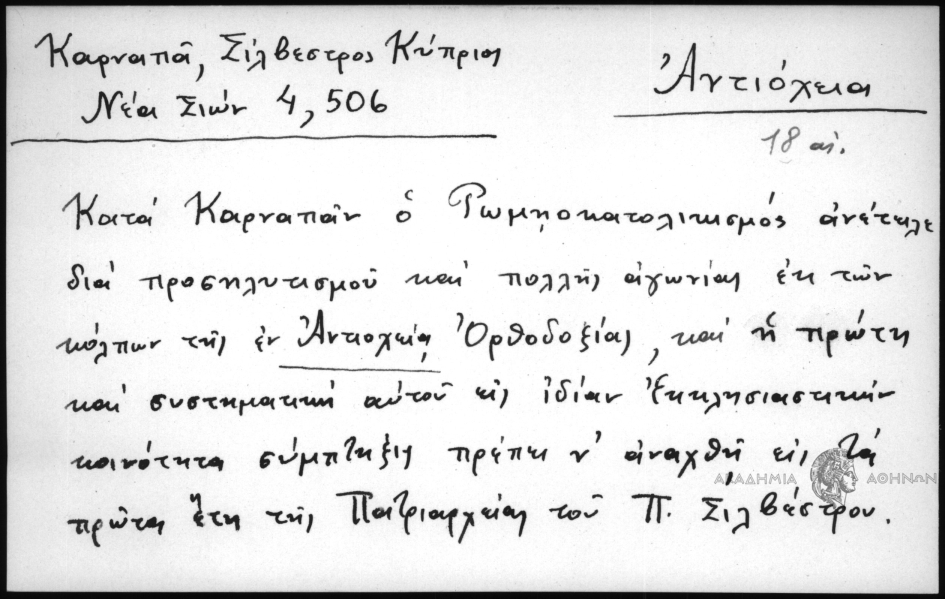 Καρναπᾶ, Σίλβεστρος Κύπριος
Νέα Σιών 4, 506
Ἀντιόχεια
18 αἰ.
Κατά Καρναπᾶν ὁ Ρωμηοκατολικισμός ἀνέτειλε
διά προσηλυτισμοῦ καί πολλῆς ἀγωνίας ἐκ τῶν
κόλπων τῆς ἐν Ἀντιοχείᾳ Ὀρθοδοξίας, καί ἡ πρώτη
καί συστηματική αὐτοῦ εἰς ἰδίαν Ἐκκλησιαστικήν
κοινότητα σύμπτηξις πρέπει ν' ἀναχθῆ εἰς τά
ΑΚΑΔΗΜΙΑ ΑΘΗΝΩΝ
πρῶτα ἔτη τῆς Πατριαρχείας τοῦ Π. Σιλβέστρου.